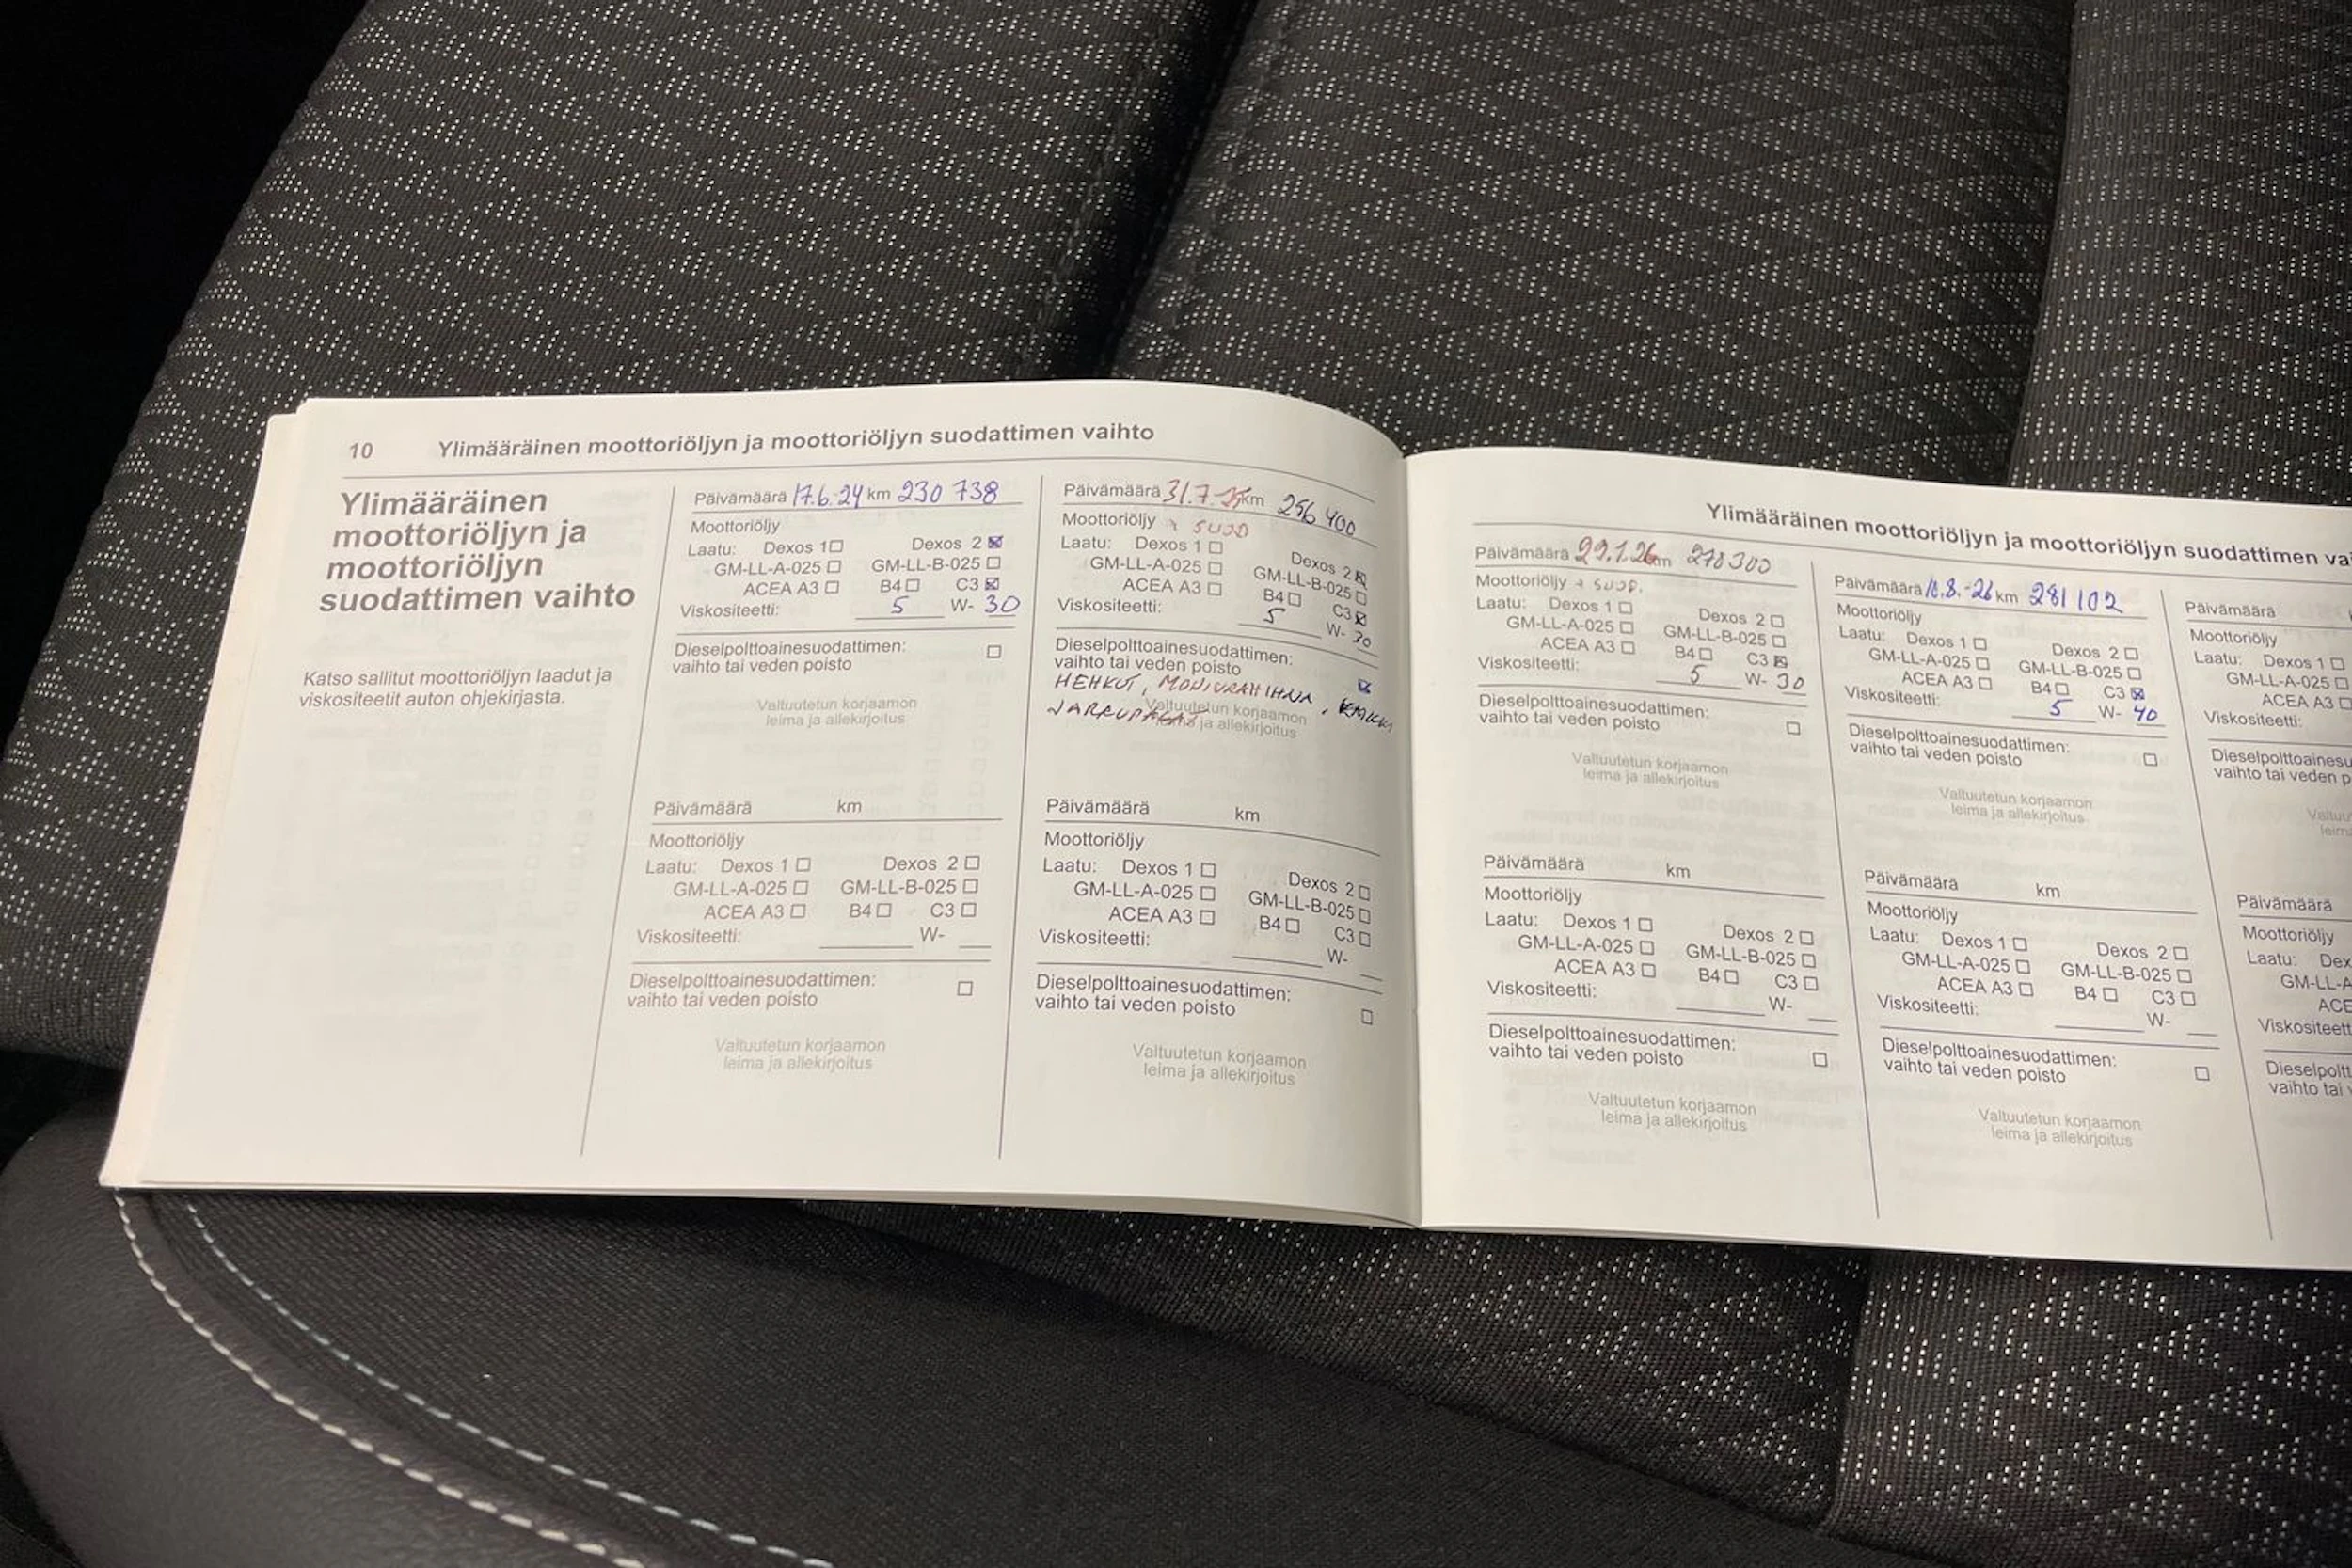 10 Ylimääräinen moottoriöljyn ja moottoriöljyn suodattimen vaihto
Ylimääräinen
moottoriöljyn ja
moottoriöljyn
suodattimen vaihto
Katso sallitut moottoriöljyn laadut ja
viskositeetit auton ohjekirjasta.
Päivämäärä 17.6.-24 km 230 738
Moottoriöljy
Laatu: Dexos 1 ☐ Dexos 2 ☒
GM-LL-A-025 ☐ GM-LL-B-025 ☐
ACEA A3 ☐ B4 ☐ C3 ☒
Viskositeetti: 5 W- 30
Dieselpolttoainesuodattimen:
vaihto tai veden poisto ☐
Valtuutetun korjaamon
leima ja allekirjoitus
Päivämäärä km
Moottoriöljy
Laatu: Dexos 1 ☐ Dexos 2 ☐
GM-LL-A-025 ☐ GM-LL-B-025 ☐
ACEA A3 ☐ B4 ☐ C3 ☐
Viskositeetti: W-
Dieselpolttoainesuodattimen:
vaihto tai veden poisto ☐
Valtuutetun korjaamon
leima ja allekirjoitus
Päivämäärä 31.7.-25 km 256 400
Moottoriöljy + SUOD
Laatu: Dexos 1 ☐ Dexos 2 ☒
GM-LL-A-025 ☐ GM-LL-B-025 ☐
ACEA A3 ☐ B4 ☐ C3 ☒
Viskositeetti: 5 W- 30
Dieselpolttoainesuodattimen:
vaihto tai veden poisto ☒
HEHKUT, MONIURAHIHNA, KAIKKI
JARRUPALAT
Valtuutetun korjaamon
ja allekirjoitus
Päivämäärä km
Moottoriöljy
Laatu: Dexos 1 ☐ Dexos 2 ☐
GM-LL-A-025 ☐ GM-LL-B-025 ☐
ACEA A3 ☐ B4 ☐ C3 ☐
Viskositeetti: W-
Dieselpolttoainesuodattimen:
vaihto tai veden poisto ☐
Valtuutetun korjaamon
leima ja allekirjoitus
Ylimääräinen moottoriöljyn ja moottoriöljyn suodattimen va
Päivämäärä 29.1.26 km 278300
Moottoriöljy + SUOD.
Laatu: Dexos 1 ☐ Dexos 2 ☐
GM-LL-A-025 ☐ GM-LL-B-025 ☐
ACEA A3 ☐ B4 ☐ C3 ☒
Viskositeetti: 5 W- 30
Dieselpolttoainesuodattimen:
vaihto tai veden poisto ☐
Valtuutetun korjaamon
leima ja allekirjoitus
Päivämäärä km
Moottoriöljy
Laatu: Dexos 1 ☐ Dexos 2 ☐
GM-LL-A-025 ☐ GM-LL-B-025 ☐
ACEA A3 ☐ B4 ☐ C3 ☐
Viskositeetti: W-
Dieselpolttoainesuodattimen:
vaihto tai veden poisto ☐
Valtuutetun korjaamon
leima ja allekirjoitus
Päivämäärä km 281 102
Moottoriöljy
Laatu: Dexos 1 ☐ Dexos 2 ☐
GM-LL-A-025 ☐ GM-LL-B-025 ☐
ACEA A3 ☐ B4 ☐ C3 ☒
Viskositeetti: 5 W- 40
Dieselpolttoainesuodattimen:
vaihto tai veden poisto ☐
Valtuutetun korjaamon
leima ja allekirjoitus
Päivämäärä km
Moottoriöljy
Laatu: Dexos 1 ☐ Dexos 2 ☐
GM-LL-A-025 ☐ GM-LL-B-025 ☐
ACEA A3 ☐ B4 ☐ C3 ☐
Viskositeetti: W-
Dieselpolttoainesuodattimen:
vaihto tai veden poisto ☐
Valtuutetun korjaamon
leima ja allekirjoitus
Päivämäärä
Moottoriöljy
Laatu: Dexos 1 ☐
GM-LL-A-025 ☐
ACEA A3 ☐
Viskositeetti:
Dieselpolttoainesu
vaihto tai veden p
Valtuu
leima
Päivämäärä
Moottoriöljy
Laatu: Dex
GM-LL-A
ACE
Viskositeett
Dieselpoltt
vaihto tai